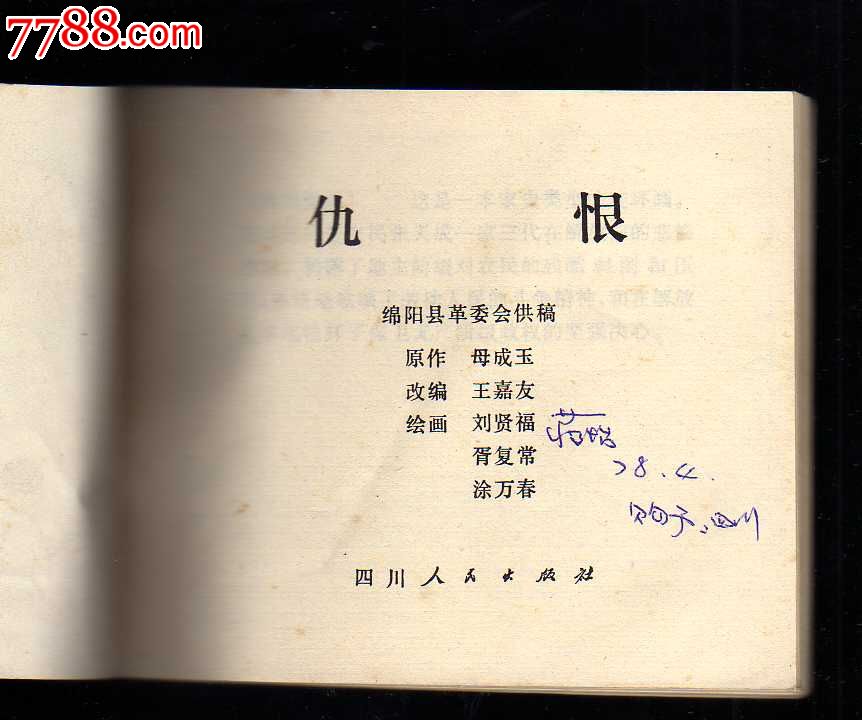 7788.com
仇 恨
绵阳县革委会供稿
原作 母成玉
改编 王嘉友
绘画 刘贤福
胥复常
涂万春
78.4.
购于四川
四川人民出版社